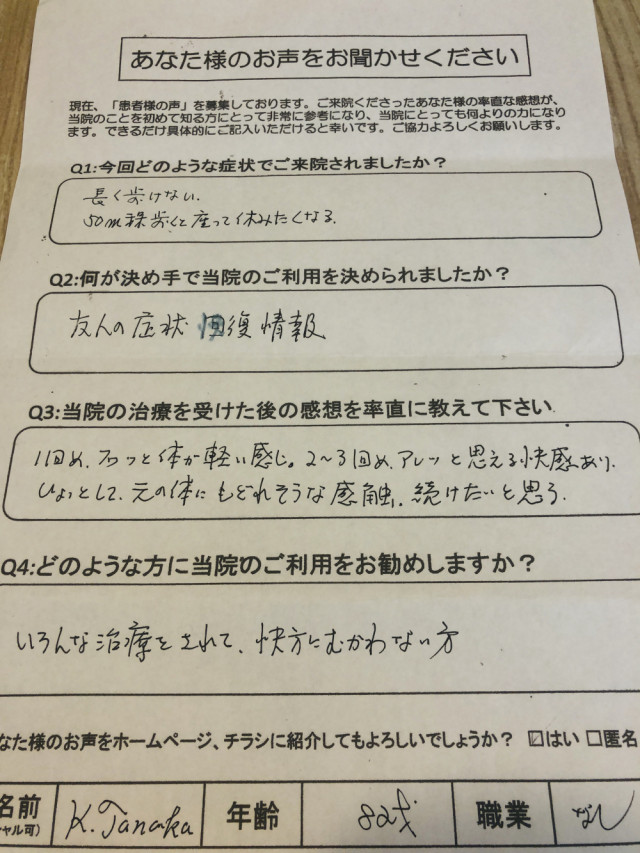 あなた様のお声をお聞かせください
現在、「患者様の声」を募集しております。ご来院くださったあなた様の率直な感想が、
当院のことを初めて知る方にとって非常に参考になり、当院にとっても何よりの力になり
ます。できるだけ具体的にご記入いただけると幸いです。ご協力よろしくお願いします。
Q1:今回どのような症状でご来院されましたか？
長く歩けない.
50m程歩くと座って休みたくなる.
Q2:何が決め手で当院のご利用を決められましたか？
友人の症状回復情報
Q3:当院の治療を受けた後の感想を率直に教えて下さい
1回め、スッと体が軽い感じ。2〜3回め、アレッと思える快感あり.
ひょっとして、元の体にもどれそうな感触. 続けたいと思う.
Q4:どのような方に当院のご利用をお勧めしますか？
いろんな治療をされて、快方にむかわない方
なた様のお声をホームページ、チラシに紹介してもよろしいでしょうか？ ☑はい □匿名
名前 K.Tanaka 年齢 82才 職業 なし
ャル可)